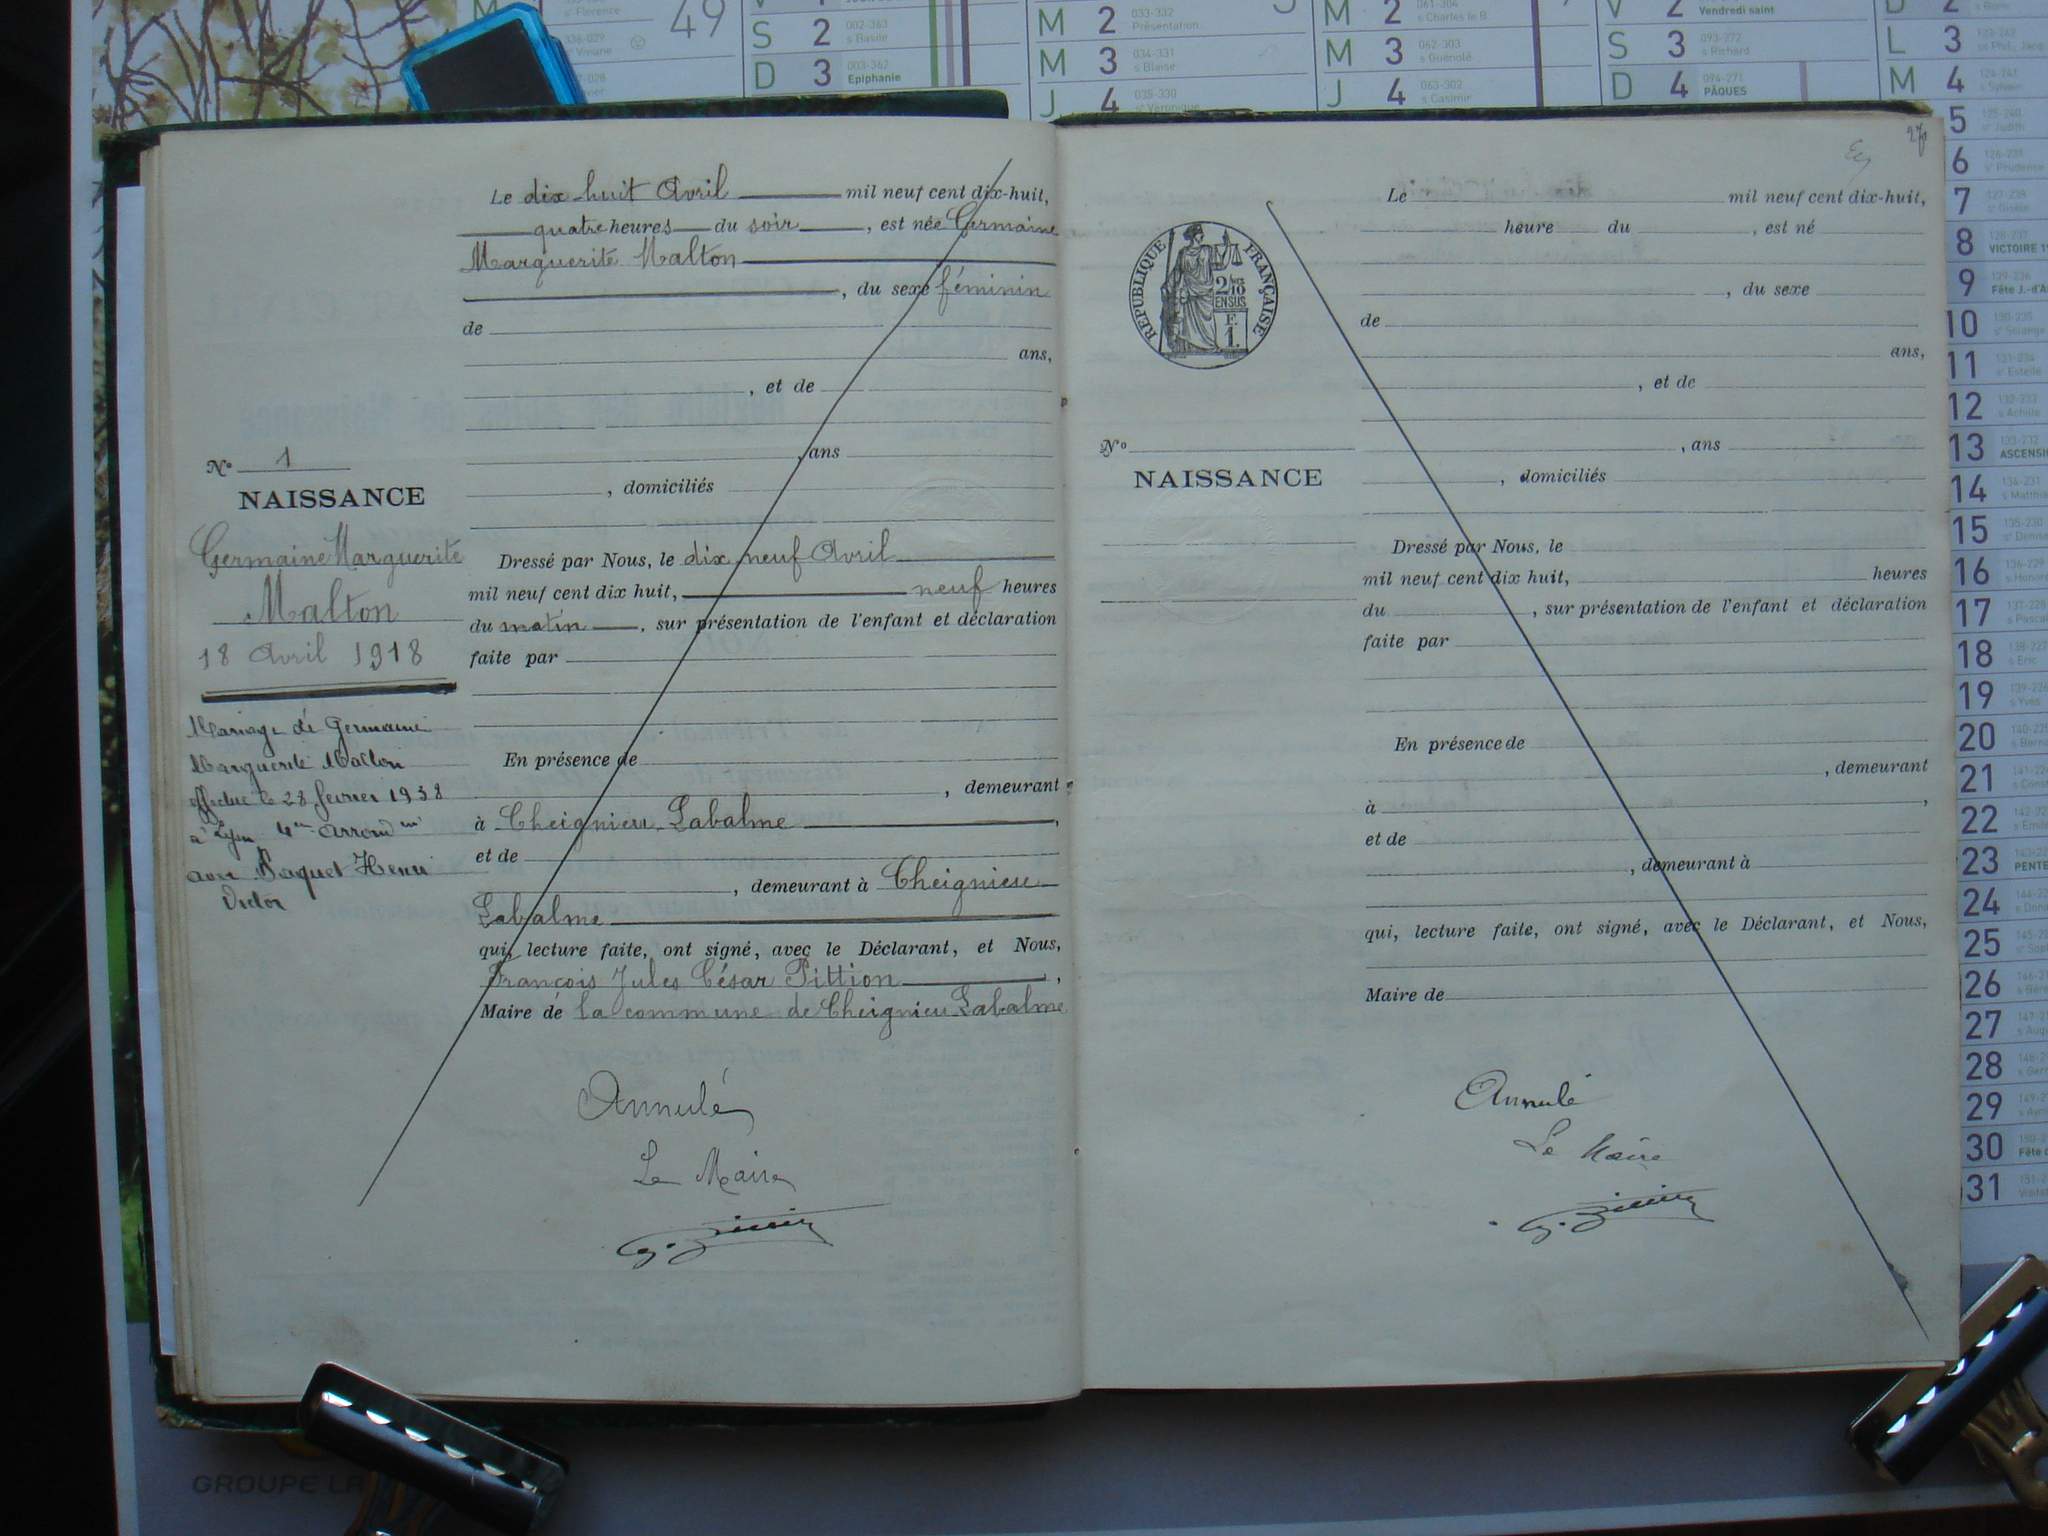 49
S 2 002-363 s Basile
D 3 003-362 Epiphanie
M 2 033-332 Présentation
M 3 034-331 s Blaise
J 4 035-330 se Véronique
M 2 061-304 s Charles le B.
M 3 062-303 s Guénolé
J 4 063-302 s Casimir
V 2 Vendredi saint
S 3 093-272 s Richard
D 4 094-271 PÂQUES
L 3
M 4
Le dix-huit Avril mil neuf cent dix-huit,
quatre heures du soir, est née Germaine
Marguerite Malton
, du sexe féminin
de
ans,
, et de
, ans
, domiciliés
N° 1
NAISSANCE
Germaine Marguerite
Malton
18 Avril 1918
Mariage de Germaine
Marguerite Malton
effectué le 28 février 1938
à Lyon 4me arrondmt
avec Baquet Henri
Victor
Dressé par Nous, le dix neuf Avril
mil neuf cent dix huit, neuf heures
du matin, sur présentation de l'enfant et déclaration
faite par
En présence de
, demeurant
à Cheignieu-Labalme,
et de
, demeurant à Cheignieu
Labalme
qui, lecture faite, ont signé, avec le Déclarant, et Nous,
François Jules César Pittion,
Maire de la commune de Cheignieu-Labalme
Annulé
Le Maire
27
RÉPUBLIQUE FRANÇAISE
2/10
EN SUS
F.
1.
Le mil neuf cent dix-huit,
heure du , est né
, du sexe
de
ans,
, et de
N° , ans
NAISSANCE
, domiciliés
Dressé par Nous, le
mil neuf cent dix huit, heures
du , sur présentation de l'enfant et déclaration
faite par
En présence de
, demeurant
à ,
et de
, demeurant à
qui, lecture faite, ont signé, avec le Déclarant, et Nous,
Maire de
Annulé
Le Maire
5
6
7
8 VICTOIRE 19
9 Fête J.-d'A
10
11 s Estelle
12 s Achille
13 ASCENSI
14
15
16
17
18 s Eric
19 s Yves
20
21
22
23 PENTE
24
25
26
27
28
29
30
31
GROUPE LA